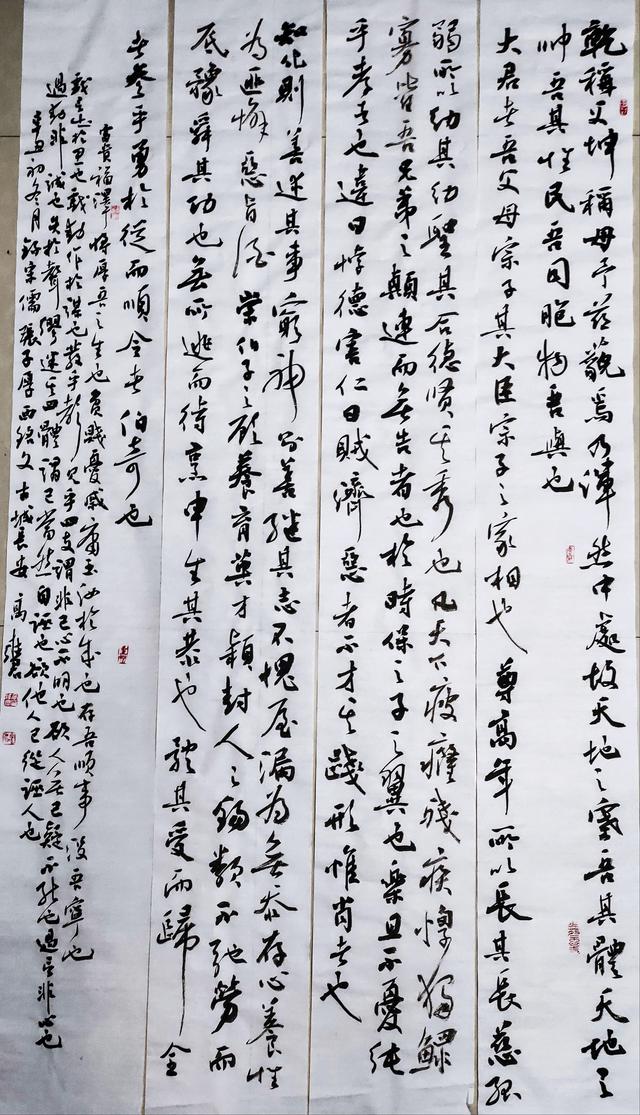 乾稱父坤稱母予茲藐焉乃渾然中處故天地之塞吾其體天地之
帥吾其性民吾同胞物吾與也
大君者吾父母宗子其大臣宗子之家相也尊高年所以長其長慈孤
弱所以幼其幼聖其合德賢其秀也凡天下疲癃殘疾惸獨鰥
寡皆吾兄弟之顛連而無告者也於時保之子之翼也樂且不憂純
乎孝者也違曰悖德害仁曰賊濟惡者不才其踐形惟肖者也
知化則善述其事窮神則善繼其志不愧屋漏為無忝存心養性
為匪懈惡旨酒崇伯子之顧養育英才穎封人之錫類不弛勞而
底豫舜其功也無所逃而待烹申生其恭也體其受而歸全
者參乎勇於從而順令者伯奇也
富貴福澤將厚吾之生也貧賤憂戚庸玉汝於成也存吾順事沒吾寧也
戲言出於思也戲動作於謀也發乎聲見乎四支謂非己心不明也欲人無己疑不能也過言非心也
過動非誠也失於聲繆迷其四體謂己當然自誣也欲他人己從誣人也
辛丑初冬月錄宋儒張子厚西銘文古城長安高